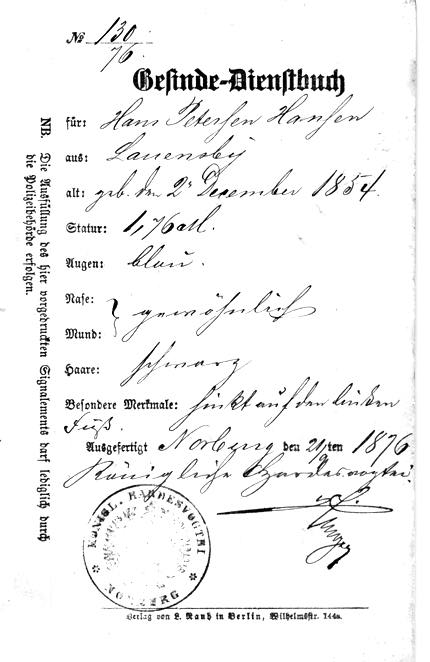 № 130/76
Gesinde-Dienstbuch
für: Hans Petersen Hansen
aus: Lauensby
alt: geb. den 2ⁿ December 1854.
Statur: 1,76 M.
Augen: blau.
Nase:
gewöhnlich
Mund:
Haare: schwarz
Besondere Merkmale: hinkt auf den linken
Fuß.
Ausgefertigt Norburg den 21/9 ten 1876
Königliche Hardesvogtei.
KÖNIGL. HARDESVOGTEI
NORBURG
Verlag von L. Rauh in Berlin, Wilhelmstr. 144a.
NB. Die Ausfüllung des hier vorgedruckten Signalements darf lediglich durch
die Polizeibehörde erfolgen.